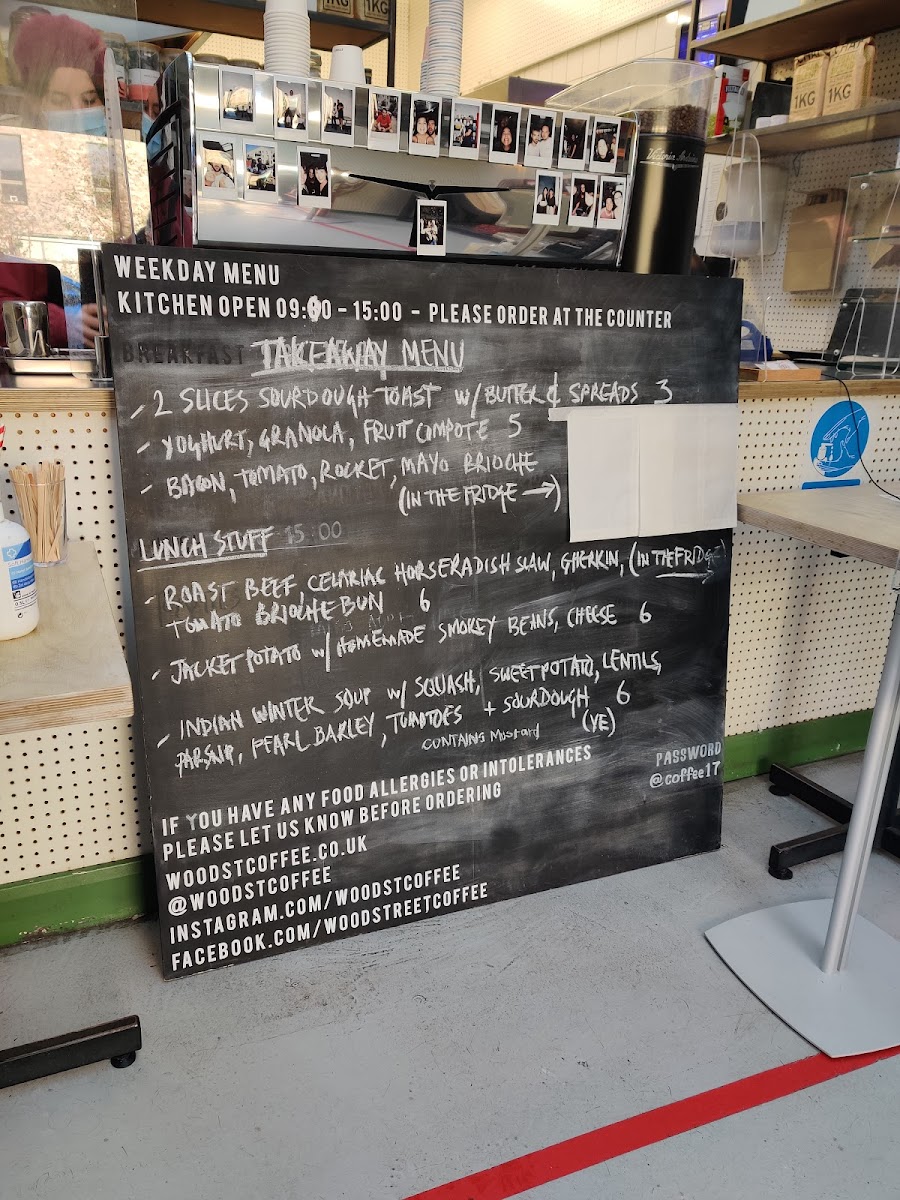 1KG
1KG
1KG
1KG
Victoria Arduino
WEEKDAY MENU
KITCHEN OPEN 09:00 - 15:00 - PLEASE ORDER AT THE COUNTER
BREAKFAST TAKEAWAY MENU
- 2 SLICES SOURDOUGH TOAST W/ BUTTER & SPREADS 3
- YOGHURT, GRANOLA, FRUIT COMPOTE 5
- BACON, TOMATO, ROCKET, MAYO BRIOCHE
(IN THE FRIDGE →)
LUNCH STUFF 15:00
- ROAST BEEF, CELARIAC HORSERADISH SLAW, GHERKIN, (IN THE FRIDGE
TOMATO BRIOCHE BUN 6
- JACKET POTATO W/ HOMEMADE SMOKEY BEANS, CHEESE 6
- INDIAN WINTER SOUP W/ SQUASH, SWEET POTATO, LENTILS,
PARSNIP, PEARL BARLEY, TOMATOES + SOURDOUGH 6
CONTAINS Mustard (VE)
PASSWORD
@coffee17
IF YOU HAVE ANY FOOD ALLERGIES OR INTOLERANCES
PLEASE LET US KNOW BEFORE ORDERING
WOODSTCOFFEE.CO.UK
@WOODSTCOFFEE
INSTAGRAM.COM/WOODSTCOFFEE
FACEBOOK.COM/WOODSTREETCOFFEE